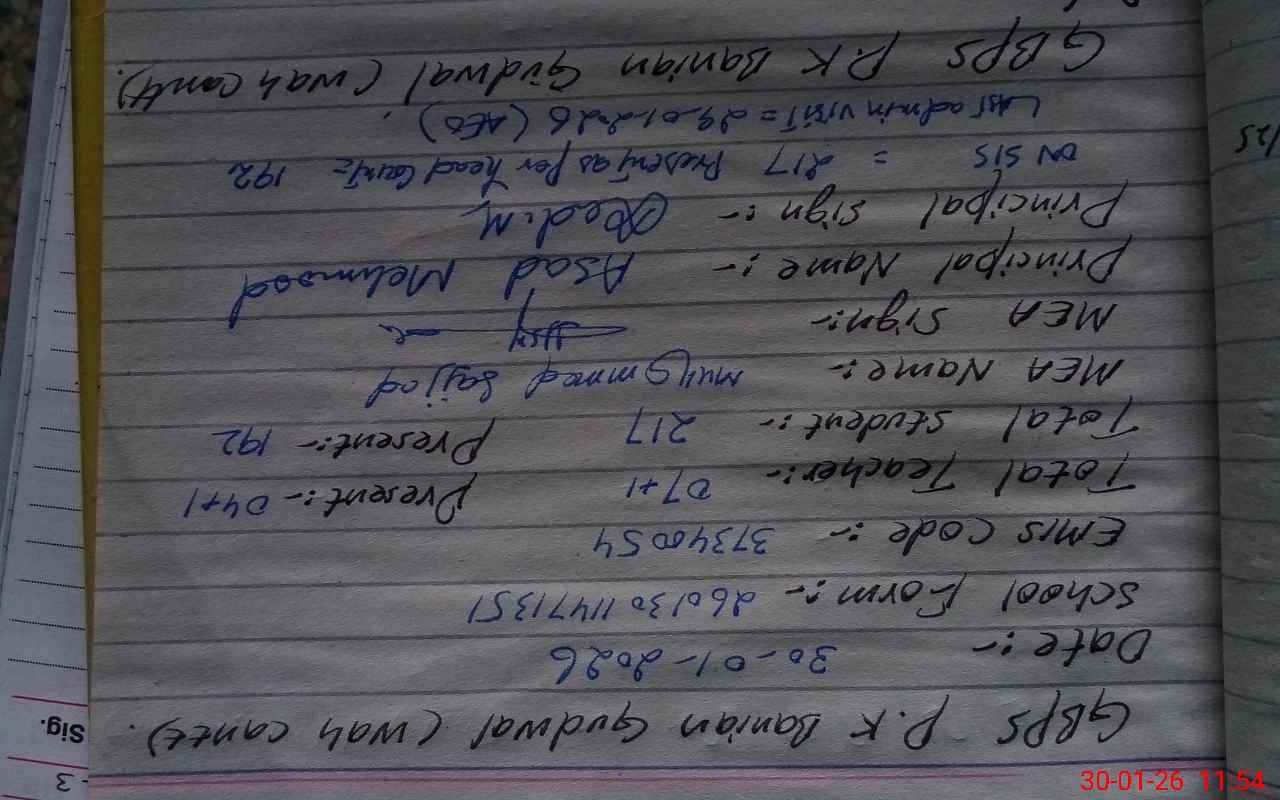 3
Sig.
GBPS P.K Banian Gudwal (wah cantt).
Date:- 30-01-2026
School Form:- 260130114471351
EMIS Code:- 37340054
Total Teacher:- 07+1 Present:- 04+1
Total Student:- 217 Present:- 192
MEA Name:- Muhammad Sajjad
MEA Sign:-
Principal Name:- Asad Mehmood
Principal Sign:-
ON SIS = 217 Present as per head Count= 192
Last admin visit = 29-01-2026 (AEO)
GBPS P.K Banian Gudwal (wah cantt).
30-01-26 11:54